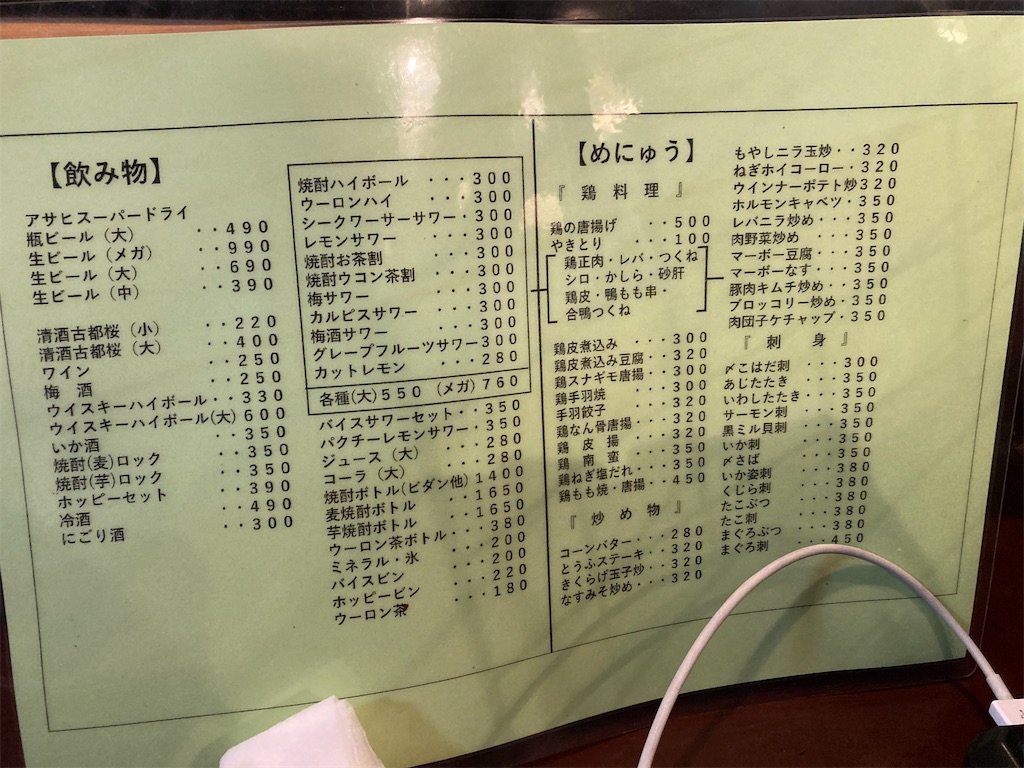 【飲み物】
アサヒスーパードライ
瓶ビール（大）・・490
生ビール（メガ）・・990
生ビール（大）・・690
生ビール（中）・・390
清酒古都桜（小）・・220
清酒古都桜（大）・・400
ワイン・・250
梅　酒・・250
ウイスキーハイボール・・330
ウイスキーハイボール(大)600
いか酒・・350
焼酎(麦)ロック・・350
焼酎(芋)ロック・・350
ホッピーセット・・390
冷酒・・490
にごり酒・・300
焼酎ハイボール・・・300
ウーロンハイ・・・300
シークワーサーサワー・300
レモンサワー・・・300
焼酎お茶割・・・300
焼酎ウコン茶割・・・300
梅サワー・・・300
カルピスサワー・・・300
梅酒サワー・・・300
グレープフルーツサワー300
カットレモン・・・280
各種(大)550　(メガ)760
バイスサワーセット・・350
パクチーレモンサワー・350
ジュース（大）・・・280
コーラ（大）・・・280
焼酎ボトル(ビダン他)1400
麦焼酎ボトル・・1650
芋焼酎ボトル・・1650
ウーロン茶ボトル・・380
ミネラル・氷・・・200
バイスビン・・・200
ホッピービン・・・220
ウーロン茶・・・180
【めにゅう】
『　鶏　料　理　』
鶏の唐揚げ・・500
やきとり・・・100
鶏正肉・レバ・つくね
シロ・かしら・砂肝
鶏皮・鴨もも串・
合鴨つくね
鶏皮煮込み・・・300
鶏皮煮込み豆腐・・320
鶏スナギモ唐揚・・300
鶏手羽焼・・・300
手羽餃子・・・320
鶏なん骨唐揚・・320
鶏　皮　揚・・・320
鶏　南　蛮・・・350
鶏ねぎ塩だれ・・350
鶏もも焼・唐揚・・450
『　炒　め　物　』
コーンバター・・・280
とうふステーキ・・320
きくらげ玉子炒・・320
なすみそ炒め・・・320
もやしニラ玉炒・・320
ねぎホイコーロー・・320
ウインナーポテト炒320
ホルモンキャベツ・350
レバニラ炒め・・・350
肉野菜炒め・・・350
マーボー豆腐・・・350
マーボーなす・・・350
豚肉キムチ炒め・・350
ブロッコリー炒め・350
肉団子ケチャップ・350
『　刺　　身　』
〆こはだ刺・・・300
あじたたき・・・350
いわしたたき・・・350
サーモン刺・・・350
黒ミル貝刺・・・350
いか刺・・・350
〆さば・・・350
いか姿刺・・・380
くじら刺・・・380
たこぶつ・・・380
たこ刺・・・380
まぐろぶつ・・・380
まぐろ刺・・・450